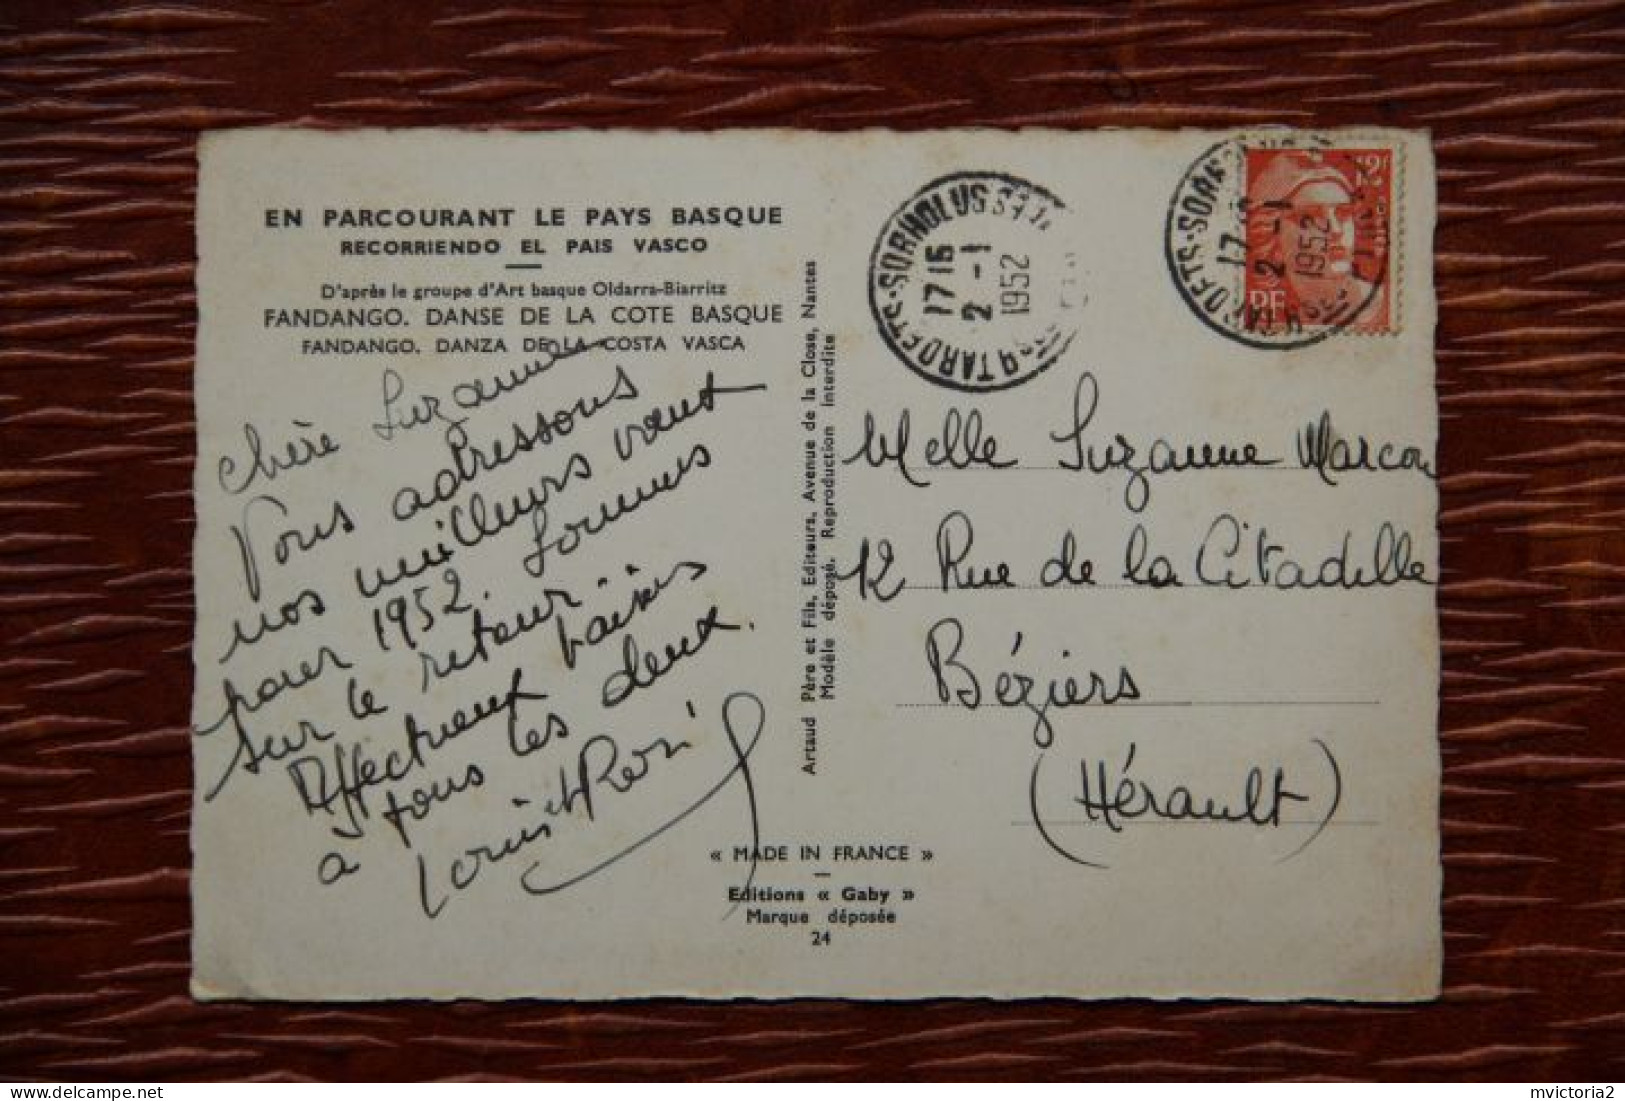 EN PARCOURANT LE PAYS BASQUE
RECORRIENDO EL PAIS VASCO
D'après le groupe d'Art basque Oldarra-Biarritz
FANDANGO. DANSE DE LA COTE BASQUE
FANDANGO. DANZA DE LA COSTA VASCA
chère Suzanne
Vous adressons
nos meilleurs vœux
pour 1952. Sommes
sur le retour
Affectueux baisers
à tous les deux.
Louis et
Artaud Père et Fils, Editeurs, Avenue de la Close, Nantes
Modèle déposé. Reproduction interdite
« MADE IN FRANCE »
Editions « Gaby »
Marque déposée
24
TARDETS-SORHOLUS
17 15
2 -1
1952
TARDETS-SORHOLUS
17
2 -1
1952
12F
RF
Melle Suzanne Marcou
12 Rue de la Citadelle
Béziers
(Hérault)
mvictoria2